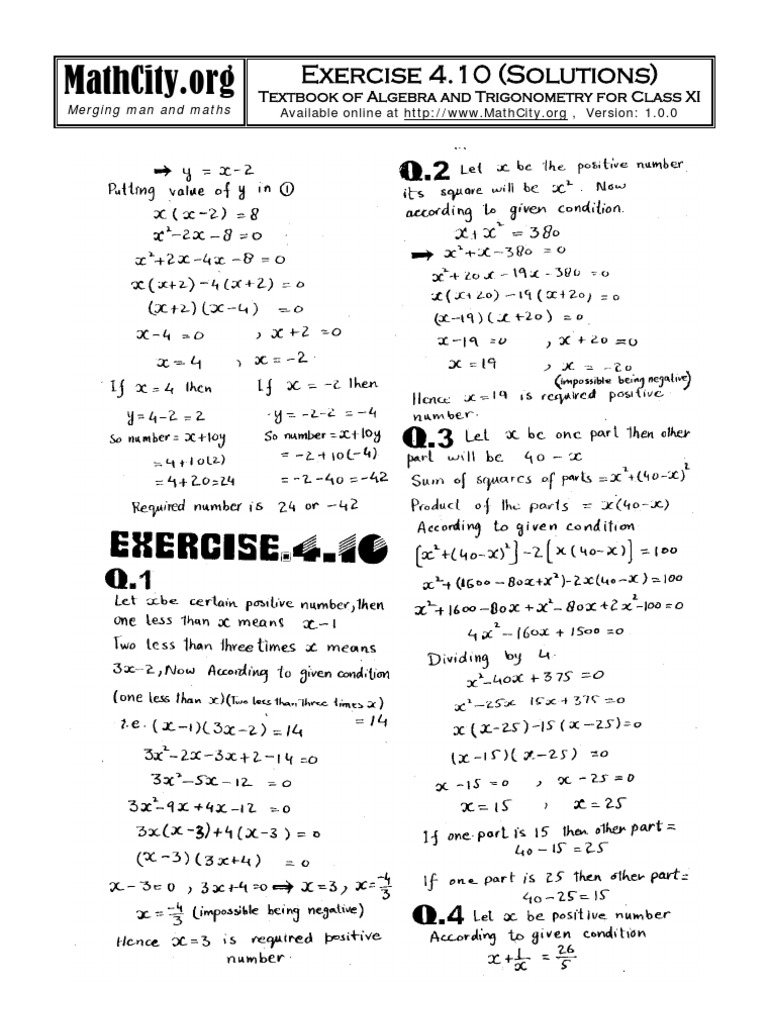 MathCity.org
Merging man and maths
Exercise 4.10 (Solutions)
Textbook of Algebra and Trigonometry for Class XI
Available online at http://www.MathCity.org , Version: 1.0.0
→ y = x-2
Putting value of y in ①
x(x-2) = 8
x²-2x-8 = 0
x²+2x-4x-8 = 0
x(x+2)-4(x+2) = 0
(x+2)(x-4) = 0
x-4 = 0 , x+2 = 0
x = 4 , x = -2
If x = 4 then If x = -2 then
y = 4-2 = 2 y = -2-2 = -4
So number = x+10y So number = x+10y
= 4+10(2) = -2+10(-4)
= 4+20 = 24 = -2-40 = -42
Required number is 24 or -42
EXERCISE.4.10
Q.1
Let x be certain positive number, then
one less than x means x-1
Two less than three times x means
3x-2, Now According to given condition
(one less than x)(Two less than three times x)
= 14
i.e. (x-1)(3x-2) = 14
3x²-2x-3x+2-14 = 0
3x²-5x-12 = 0
3x²-9x+4x-12 = 0
3x(x-3)+4(x-3) = 0
(x-3)(3x+4) = 0
x-3 = 0 , 3x+4 = 0 ⇒ x = 3 , x = -4/3
x = -4/3 (impossible being negative)
Hence x = 3 is required positive
number.
Q.2 Let x be the positive number
its square will be x². Now
according to given condition.
x+x² = 380
→ x²+x-380 = 0
x²+20x-19x-380 = 0
x(x+20)-19(x+20) = 0
(x-19)(x+20) = 0
x-19 = 0 , x+20 = 0
x = 19 , x = -20
(impossible being negative)
Hence x = 19 is required positive
number.
Q.3 Let x be one part then other
part will be 40 - x
Sum of squares of parts = x²+(40-x)²
Product of the parts = x(40-x)
According to given condition
[x²+(40-x)²]-2[x(40-x)] = 100
x²+(1600-80x+x²)-2x(40-x) = 100
x²+1600-80x+x²-80x+2x²-100 = 0
4x²-160x+1500 = 0
Dividing by 4.
x²-40x+375 = 0
x²-25x 15x+375 = 0
x(x-25)-15(x-25) = 0
(x-15)(x-25) = 0
x-15 = 0 , x-25 = 0
x = 15 , x = 25
If one part is 15 then other part =
40-15 = 25
If one part is 25 then other part =
40-25 = 15
Q.4 Let x be positive number
According to given condition
x+1/x = 26/5